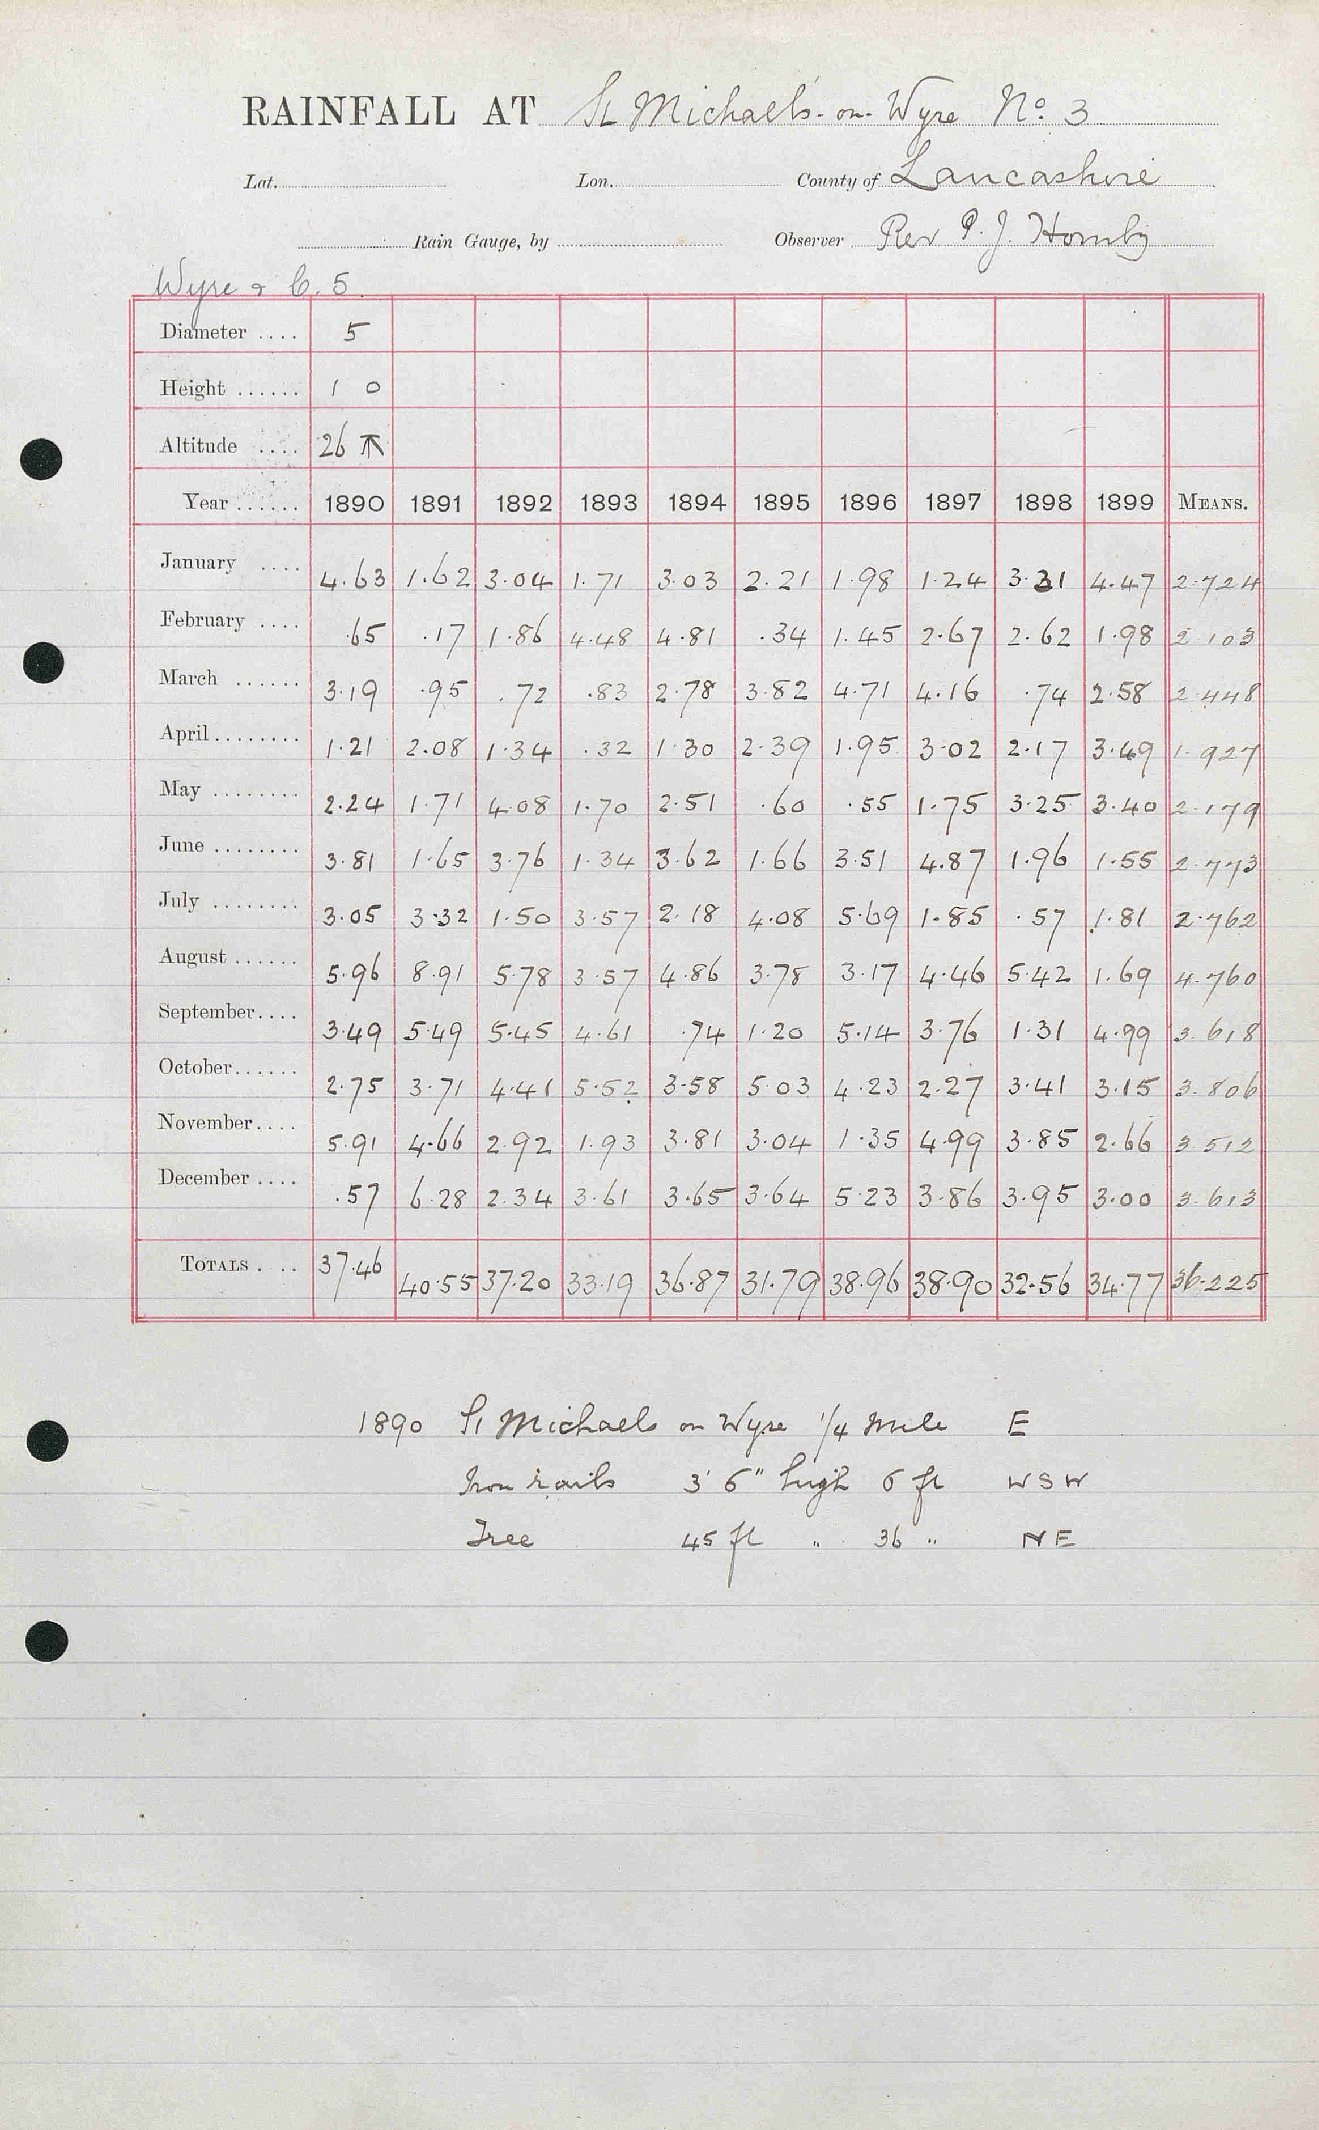 RAINFALL AT St Michael's-on-Wyre No. 3
Lat. Lon. County of Lancashire
Rain Gauge, by Observer Rev P. J. Hornby
Wyre & C. 5
Diameter .... 5
Height ...... 1 0
Altitude .... 26
Year ...... 1890 1891 1892 1893 1894 1895 1896 1897 1898 1899 MEANS.
January .... 4.63 1.62 3.04 1.71 3.03 2.21 1.98 1.24 3.31 4.47 2.724
February .... .65 .17 1.86 4.48 4.81 .34 1.45 2.67 2.62 1.98 2.103
March ...... 3.19 .95 .72 .83 2.78 3.82 4.71 4.16 .74 2.58 2.448
April ........ 1.21 2.08 1.34 .32 1.30 2.39 1.95 3.02 2.17 3.49 1.927
May ........ 2.24 1.71 4.08 1.70 2.51 .60 .55 1.75 3.25 3.40 2.179
June ........ 3.81 1.65 3.76 1.34 3.62 1.66 3.51 4.87 1.96 1.55 2.773
July ........ 3.05 3.32 1.50 3.57 2.18 4.08 5.69 1.85 .57 1.81 2.762
August ...... 5.96 8.91 5.78 3.57 4.86 3.78 3.17 4.46 5.42 1.69 4.760
September.... 3.49 5.49 5.45 4.61 .74 1.20 5.14 3.76 1.31 4.99 3.618
October...... 2.75 3.71 4.41 5.52 3.58 5.03 4.23 2.27 3.41 3.15 3.806
November.... 5.91 4.66 2.92 1.93 3.81 3.04 1.35 4.99 3.85 2.66 3.512
December .... .57 6.28 2.34 3.61 3.65 3.64 5.23 3.86 3.95 3.00 3.613
TOTALS .... 37.46 40.55 37.20 33.19 36.87 31.79 38.96 38.90 32.56 34.77 36.225
1890 St Michaels on Wyre 1/4 Mile E
Iron rails 3' 6" high 6 ft WSW
Tree 45 ft " 36 " NE